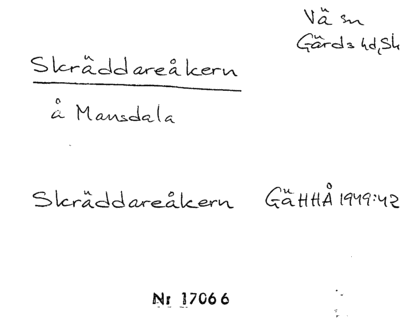 Vä sn
Gärds hd, Sk
Skräddareåkern
å Mansdala
Skräddareåkern GäHHÅ 1949:42
Nr 17066